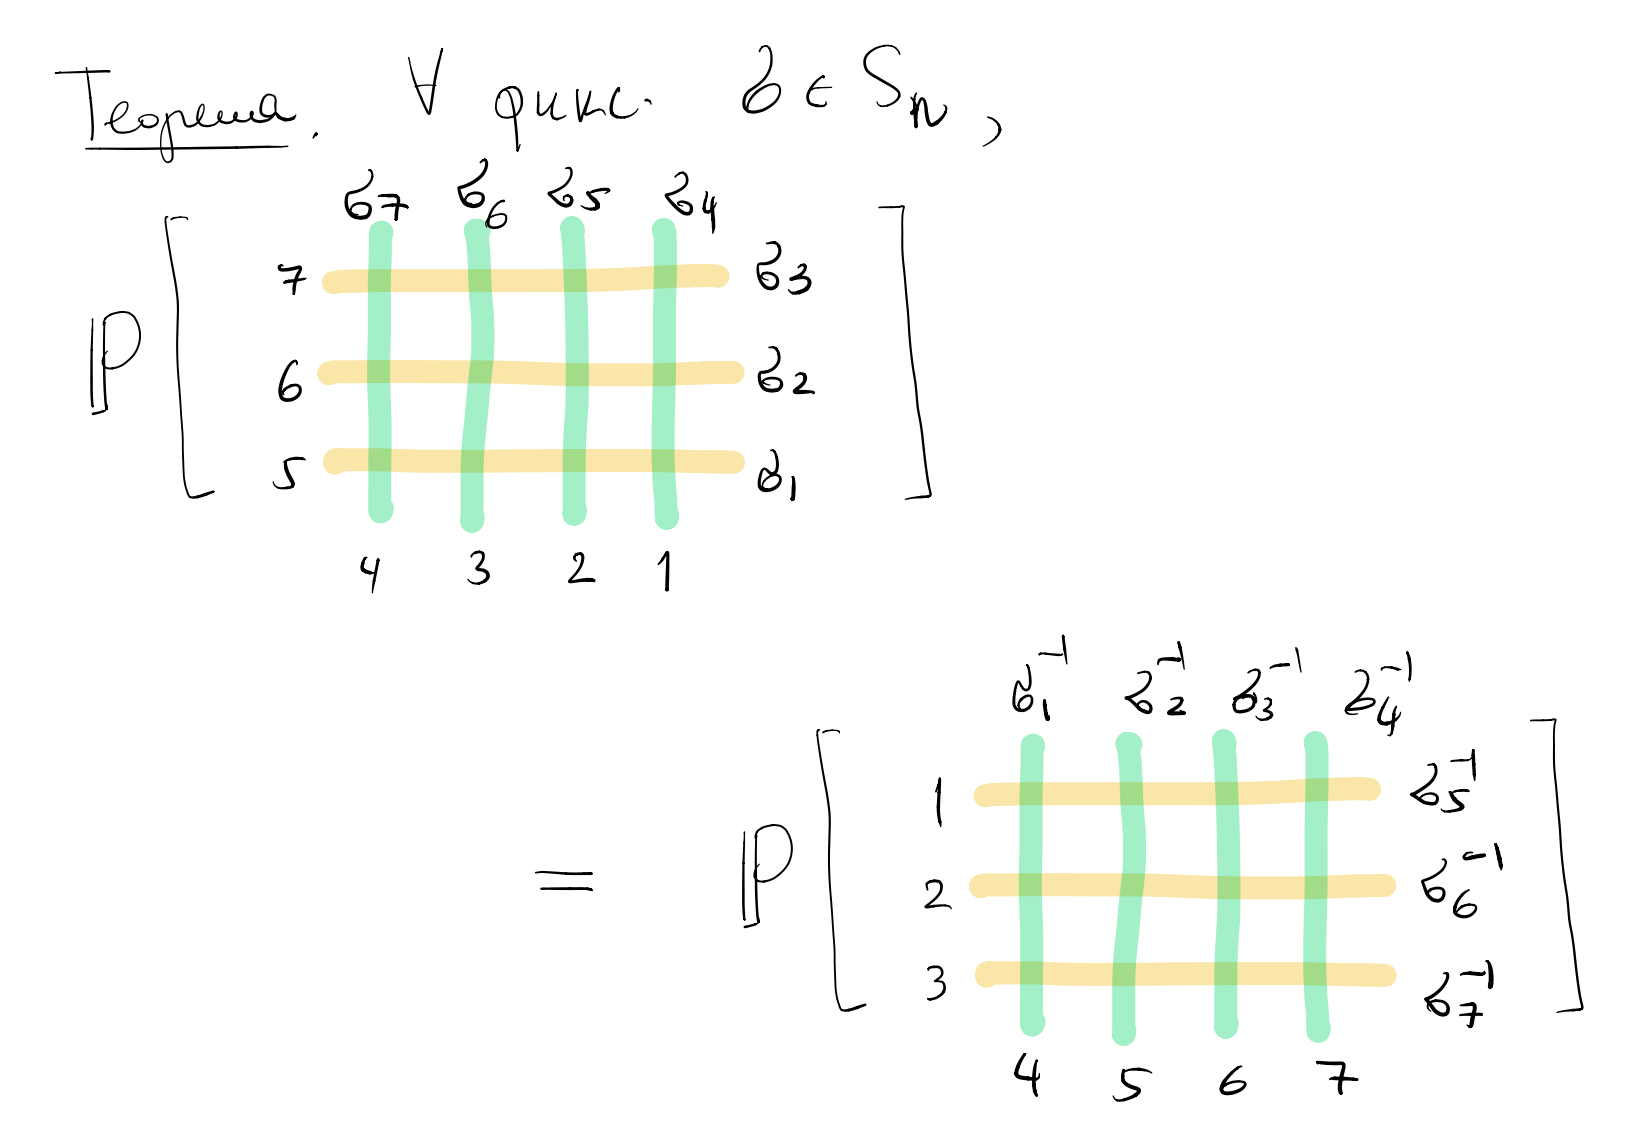 Теорема. ∀ фикс. σ ∈ Sₙ,
σ₇ σ₆ σ₅ σ₄
7 σ₃
ℙ [ 6 σ₂ ]
5 σ₁
4 3 2 1
σ₁⁻¹ σ₂⁻¹ σ₃⁻¹ σ₄⁻¹
1 σ₅⁻¹
= ℙ [ 2 σ₆⁻¹ ]
3 σ₇⁻¹
4 5 6 7